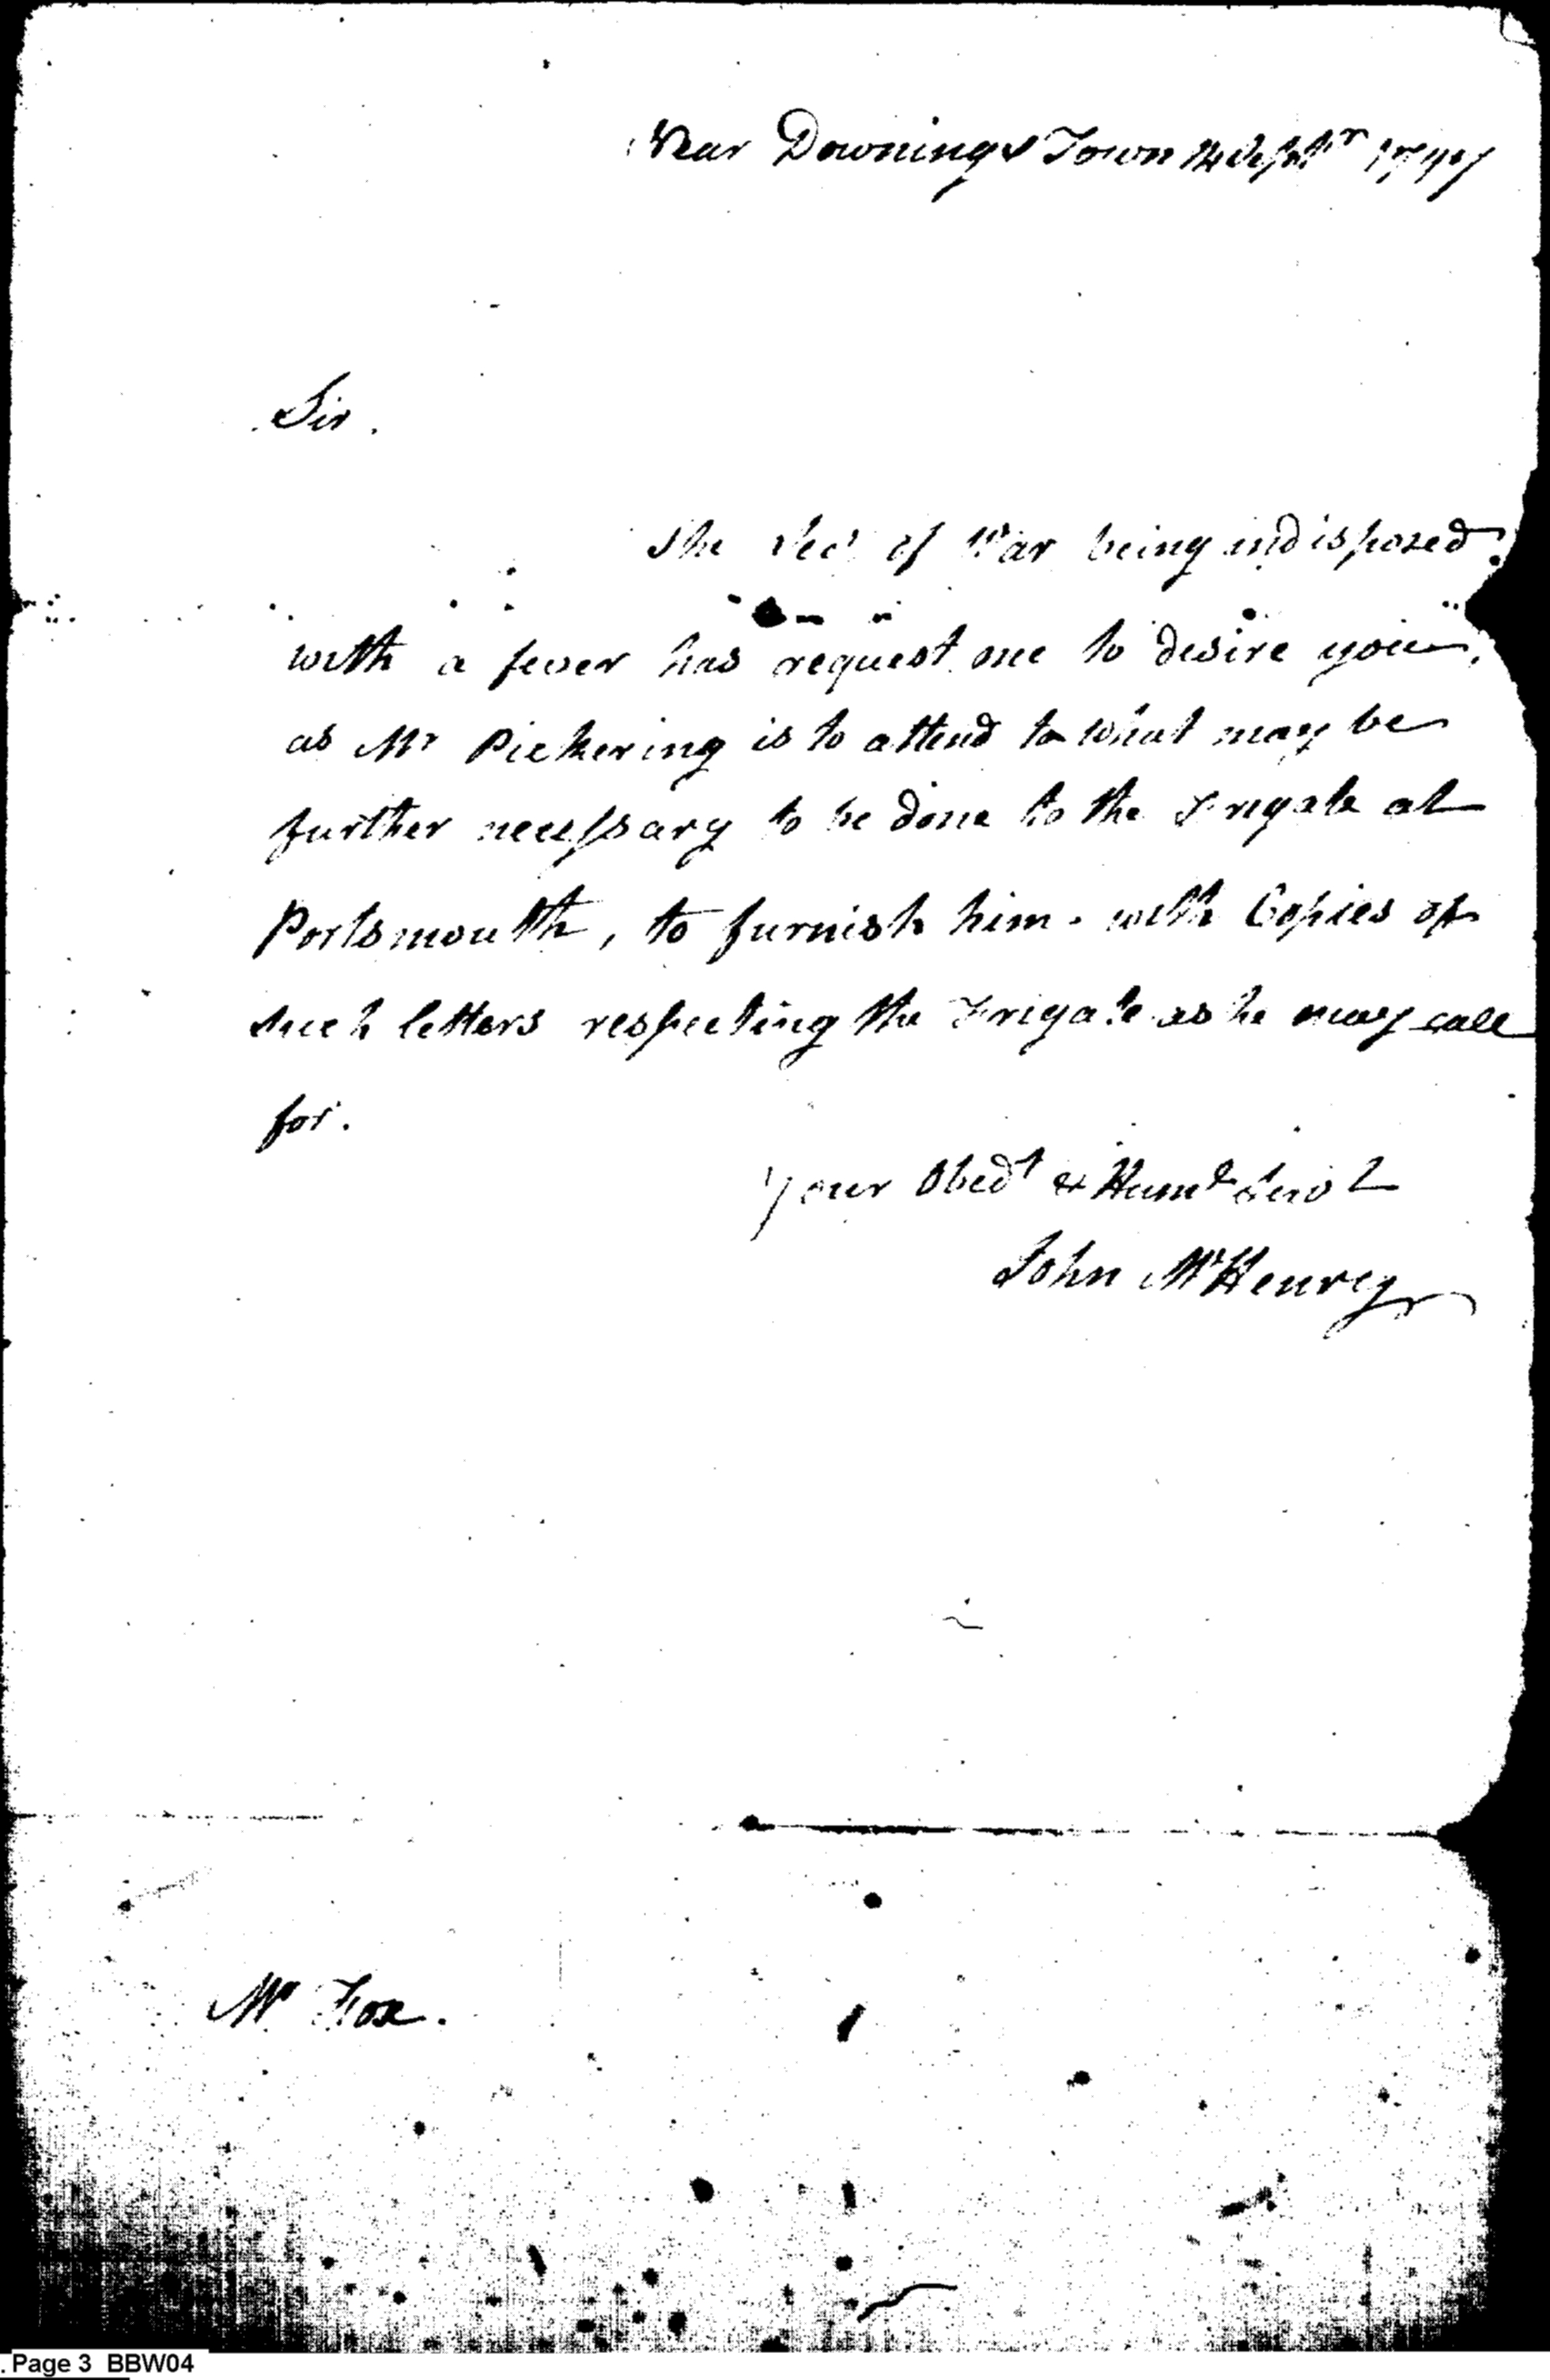 Near Downings Town 14 Septr 1797
Sir.
The Secy of War being indisposed
with a fever has request me to desire you,
as Mr Pickering is to attend to what may be
further necessary to be done to the Frigate at
Portsmouth, to furnish him with Copies of
such letters respecting the Frigate as he may call
for.
Your Obedt & Humle Servt
John McHenry
Mr Fox.
. Page 3 BBW04